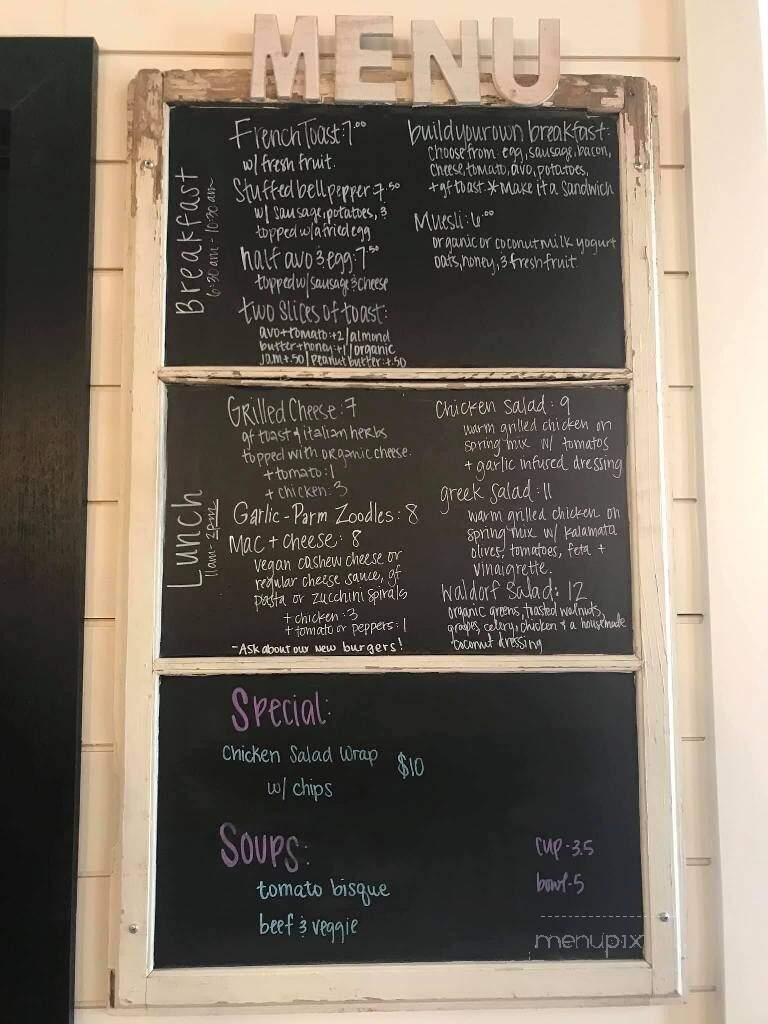 MENU
Breakfast
6:30am - 10:30am
French Toast: 7.00
w/ fresh fruit
Stuffed bell pepper: 7.50
w/ sausage, potatoes, &
topped w/ a fried egg
half avo & egg: 7.50
topped w/ sausage & cheese
two slices of toast:
avo + tomato: +2 / almond
butter + honey: +1 / organic
jam + .50 / peanut butter: +.50
build your own breakfast:
choose from: egg, sausage, bacon,
cheese, tomato, avo, potatoes,
+ gf toast. * Make it a sandwich
Muesli: 6.00
organic or coconut milk yogurt
oats, honey, & fresh fruit.
Lunch
11am - 2pm
Grilled Cheese: 7
gf toast & italian herbs
topped with organic cheese.
+ tomato: 1
+ chicken: 3
Garlic - Parm Zoodles: 8
Mac + cheese: 8
vegan cashew cheese or
regular cheese sauce, gf
pasta or zucchini spirals
+ chicken: 3
+ tomato or peppers: 1
- Ask about our new burgers!
Chicken Salad: 9
warm grilled chicken on
spring mix w/ tomatos
+ garlic infused dressing
greek Salad: 11
warm grilled chicken on
spring mix w/ kalamata
olives, tomatoes, feta +
vinaigrette.
Waldorf Salad: 12
organic greens, toasted walnuts,
grapes, celery, chicken & a housemade
coconut dressing
Special:
Chicken Salad Wrap $10
w/ chips
Soups:
tomato bisque
beef & veggie
cup - 3.5
bowl - 5
menupix